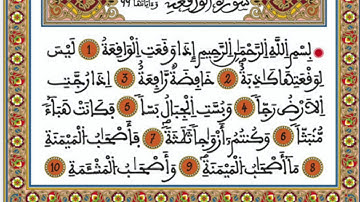 سورة الواقعة وءاياتها ٩٩
بِسْمِ اللَّهِ الرَّحْمَٰنِ الرَّحِيمِ إِذَا وَقَعَتِ الْوَاقِعَةُ 1 لَيْسَ
لِوَقْعَتِهَا كَاذِبَةٌ 2 خَافِضَةٌ رَّافِعَةٌ 3 إِذَا رُجَّتِ
الْأَرْضُ رَجًّا 4 وَبُسَّتِ الْجِبَالُ بَسًّا 5 فَكَانَتْ هَبَاءً
مُّنبَثًّا 6 وَكُنتُمْ أَزْوَاجًا ثَلَاثَةً 7 فَأَصْحَابُ الْمَيْمَنَةِ
8 مَا أَصْحَابُ الْمَيْمَنَةِ 9 وَأَصْحَابُ الْمَشْـَٔمَةِ 10